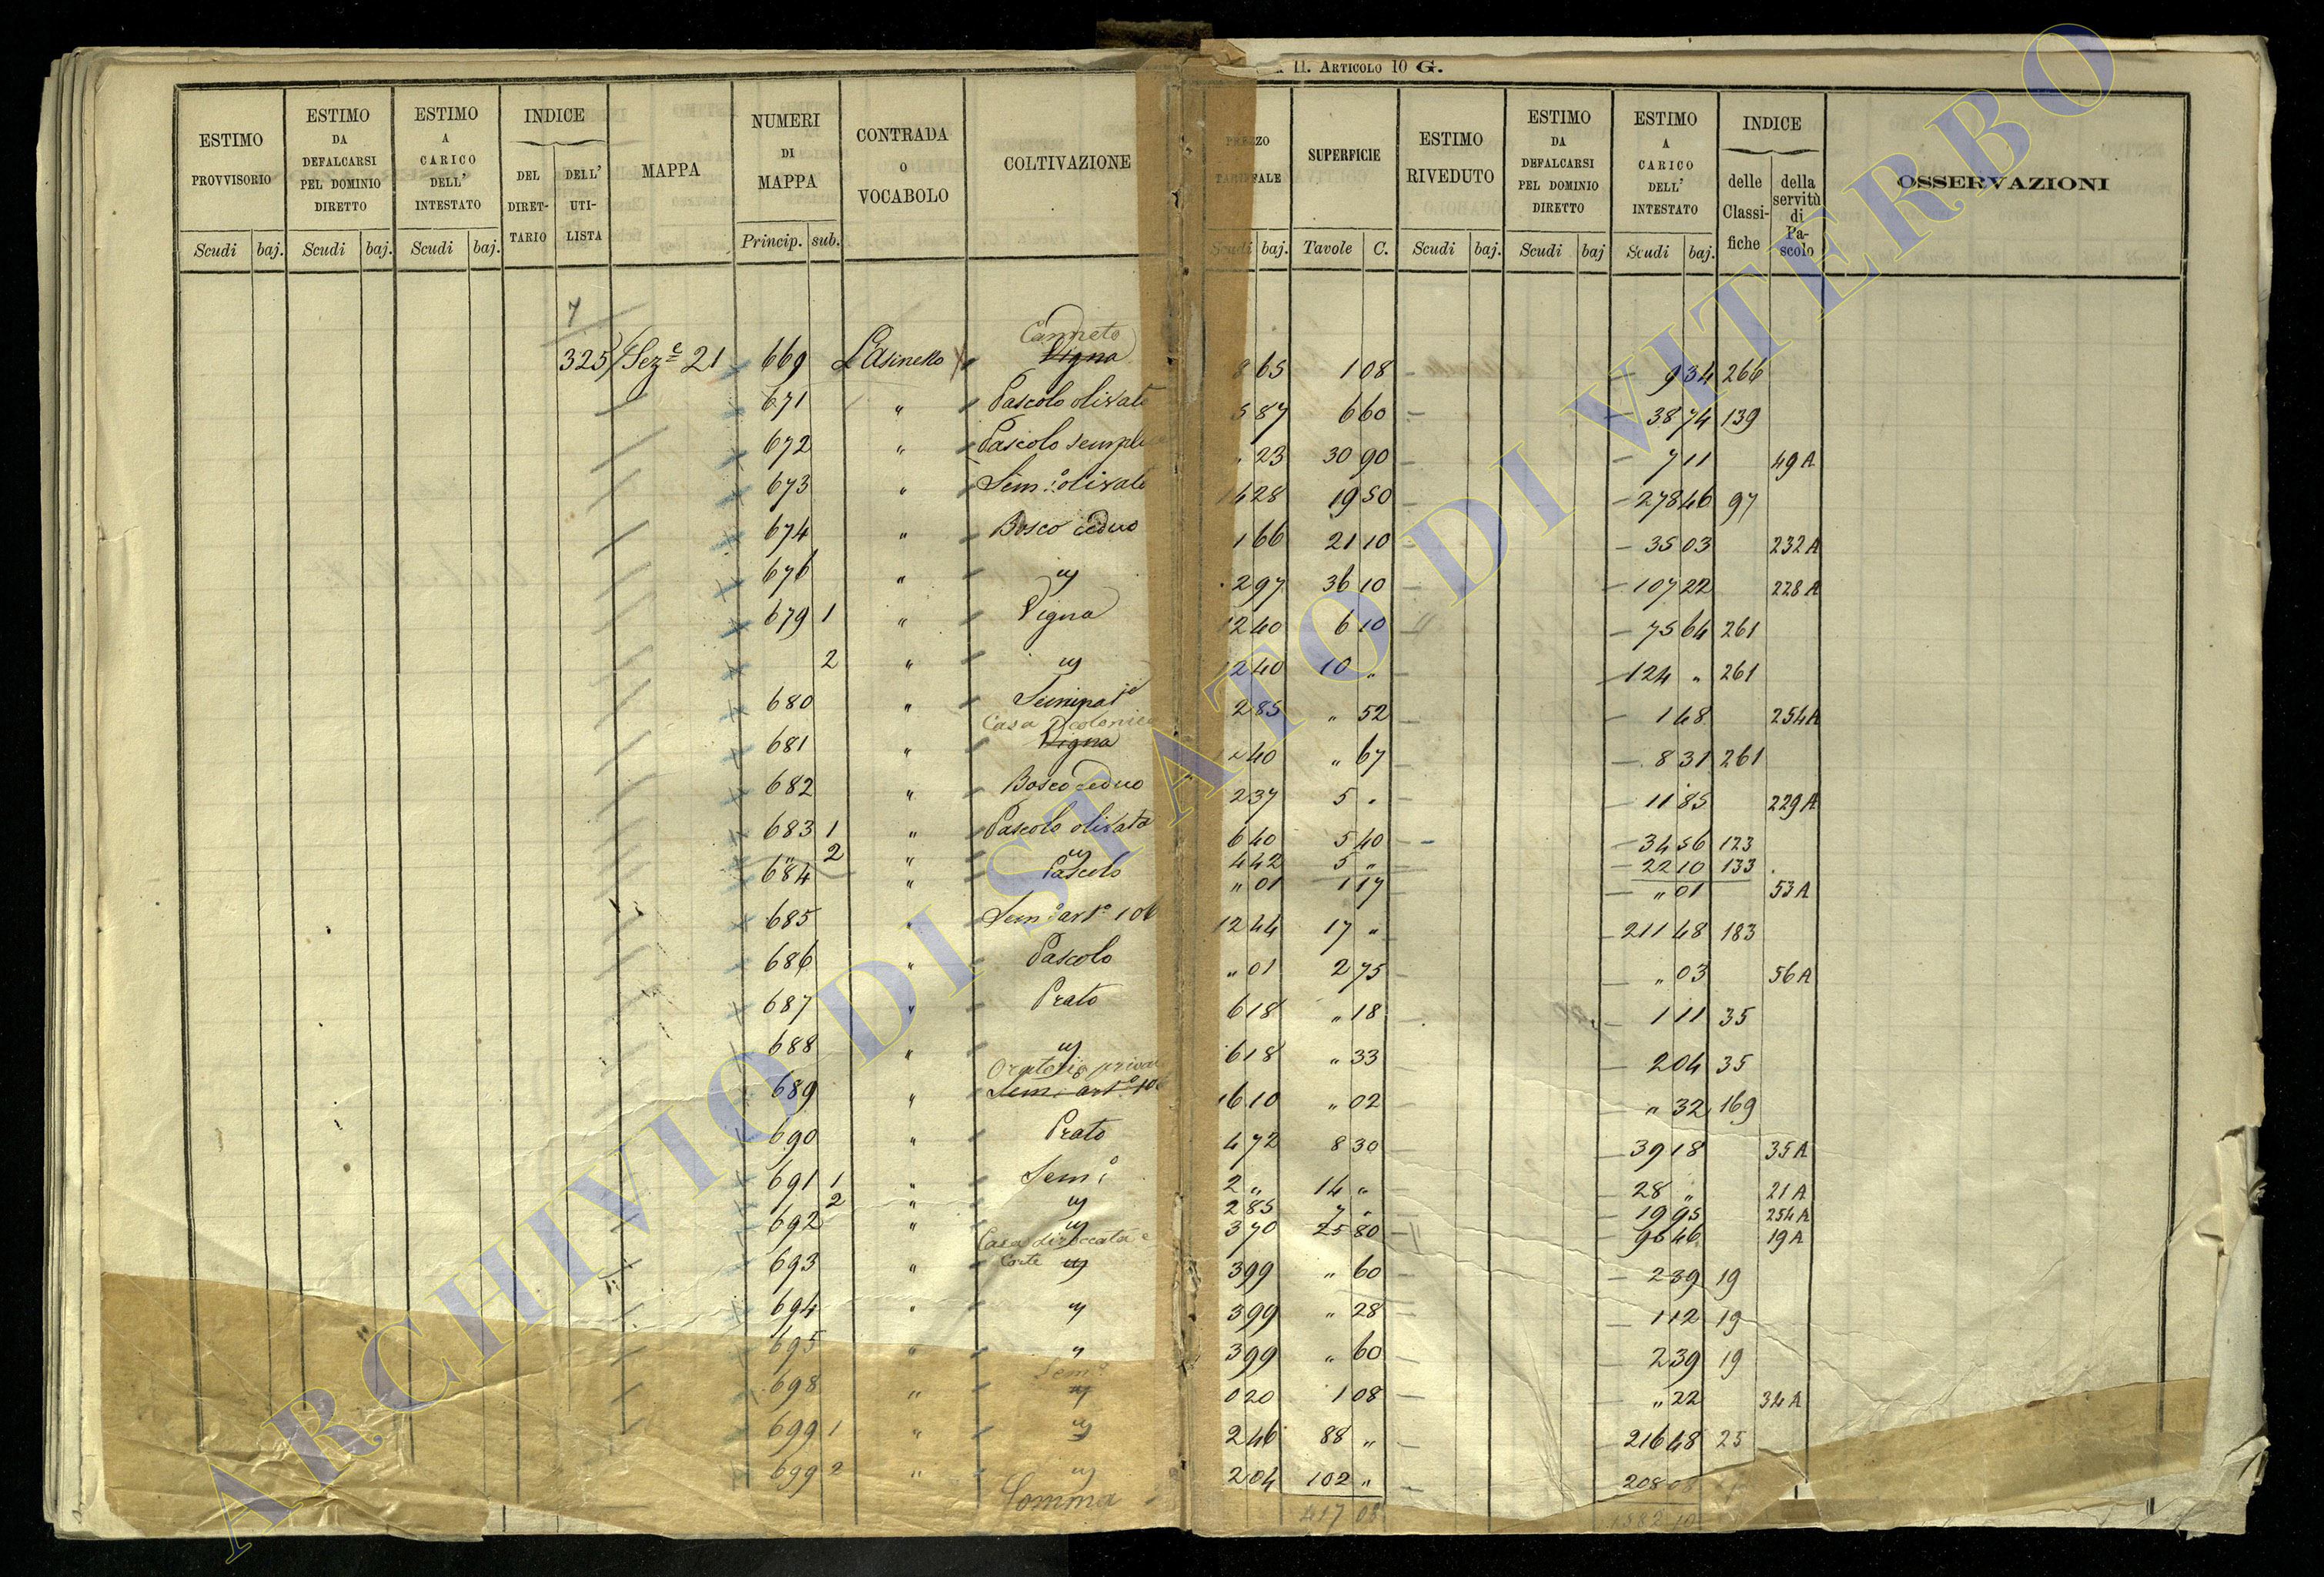 11. ARTICOLO 10 G.
ESTIMO PROVVISORIO | ESTIMO DA DEFALCARSI PEL DOMINIO DIRETTO | ESTIMO A CARICO DELL' INTESTATO | INDICE DEL DIRETTARIO | DELL' UTILISTA | MAPPA | NUMERI DI MAPPA | CONTRADA O VOCABOLO | COLTIVAZIONE | PREZZO TARIFFALE | SUPERFICIE | ESTIMO RIVEDUTO | ESTIMO DA DEFALCARSI PEL DOMINIO DIRETTO | ESTIMO A CARICO DELL' INTESTATO | INDICE delle Classifiche | della servitù di Pascolo | OSSERVAZIONI
Scudi baj. Scudi baj. Scudi baj. Princip. sub. Scudi baj. Tavole C. Scudi baj. Scudi baj Scudi baj.
7
Canneto
325 Sez.e 21 669 L'Asinello Vigna 865 1 08 9 34 266
671 " Pascolo olivato 587 6 60 38 74 139
672 " Pascolo semplice 23 30 90 7 11 49 A
673 " Sem.o olivato 14 28 19 50 278 46 97
674 " Bosco ceduo 1 66 21 10 35 03 232 A
676 " " 2 97 36 10 107 22 228 A
679 1 " Vigna 12 40 6 10 75 64 261
2 " " 12 40 10 " 124 " 261
680 " Seminat.o 2 85 " 52 1 48 254 A
Casa colonica
681 " Vigna 40 " 67 8 31 261
682 " Bosco ceduo 2 37 5 " 11 85 229 A
683 1 " Pascolo olivato 6 40 5 40 34 56 123
" 2 " " 4 42 5 " 22 10 133
684 " Pascolo " 01 1 17 " 01 53 A
685 " Sem.o art.o 106 12 44 17 " 211 48 183
686 " Pascolo " 01 2 75 " 03 56 A
687 " Prato 6 18 " 18 1 11 35
688 " " 6 18 " 33 2 04 35
Oratorio
689 " Sem. art.o 16 10 " 02 " 32 169
690 " Prato 4 72 8 30 39 18 35 A
691 1 " Sem.o 2 " 14 " 28 " 21 A
2 " " 2 85 7 " 19 95 254 A
692 " " 3 70 25 80 96 46 19 A
Casa diroccata e
693 " Corte " 3 99 " 60 2 39 19
694 " " 3 99 " 28 1 12 19
695 " " 3 99 " 60 2 39 19
Sem.o
698 " " 0 20 1 08 " 22 34 A
699 1 " " 2 46 88 " 216 48 25
699 2 " " 2 04 102 " 208 08
Somma 417 08 1382 10
ARCHIVIO DI STATO DI VITERBO